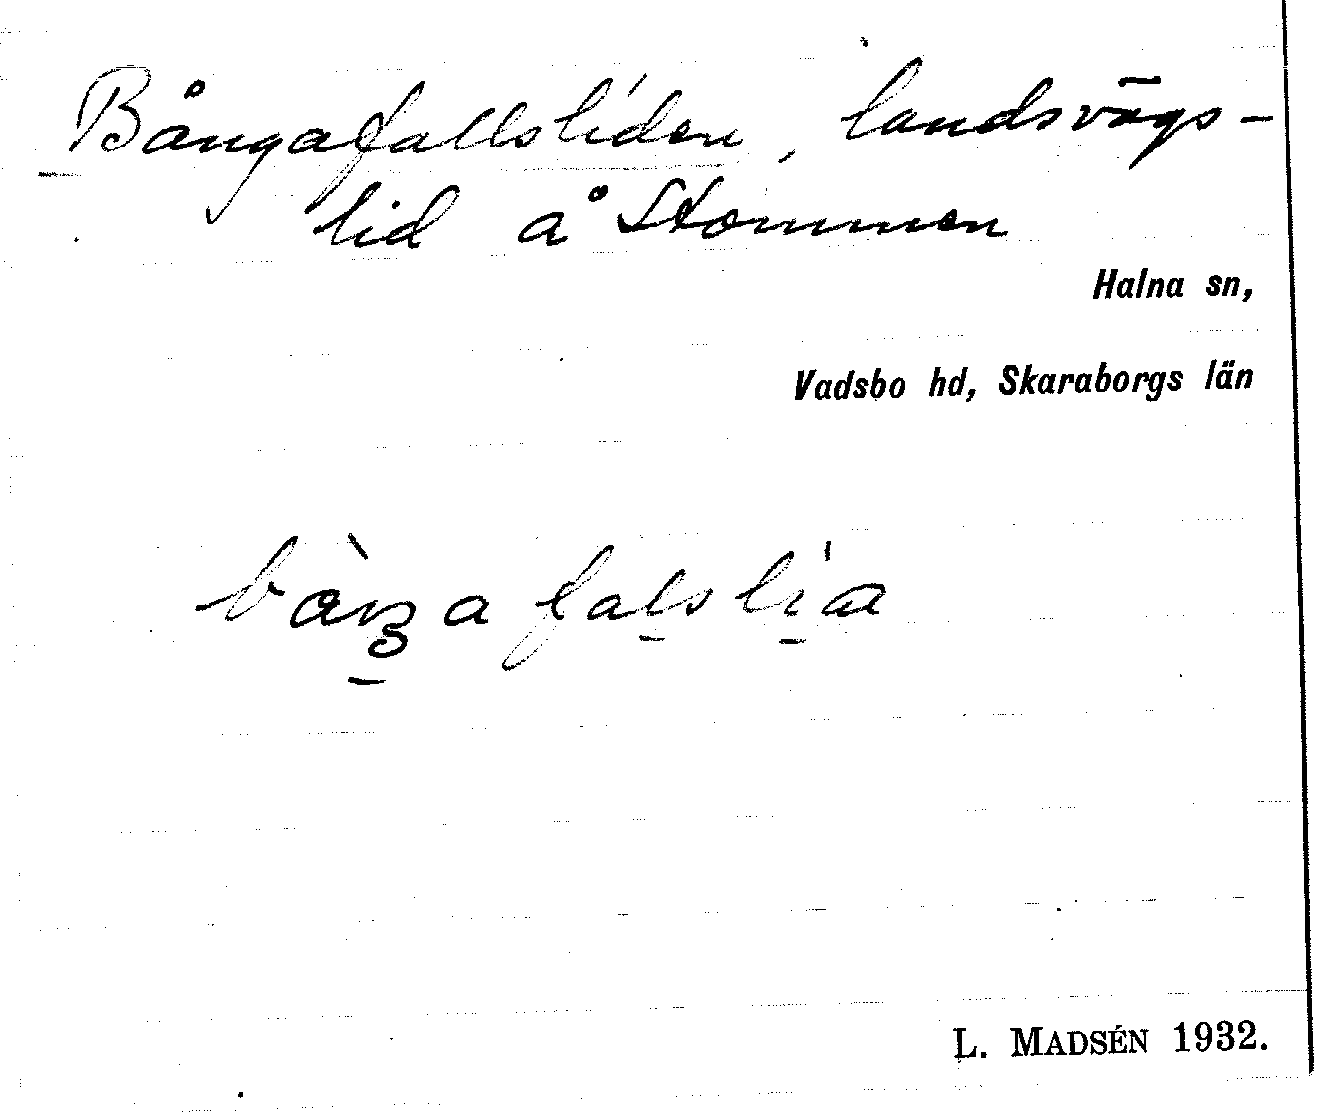 Bångafallsliden, landsvägs-
lid å Stommen
Halna sn,
Vadsbo hd, Skaraborgs län
bàŋafalslia
L. MADSÉN 1932.